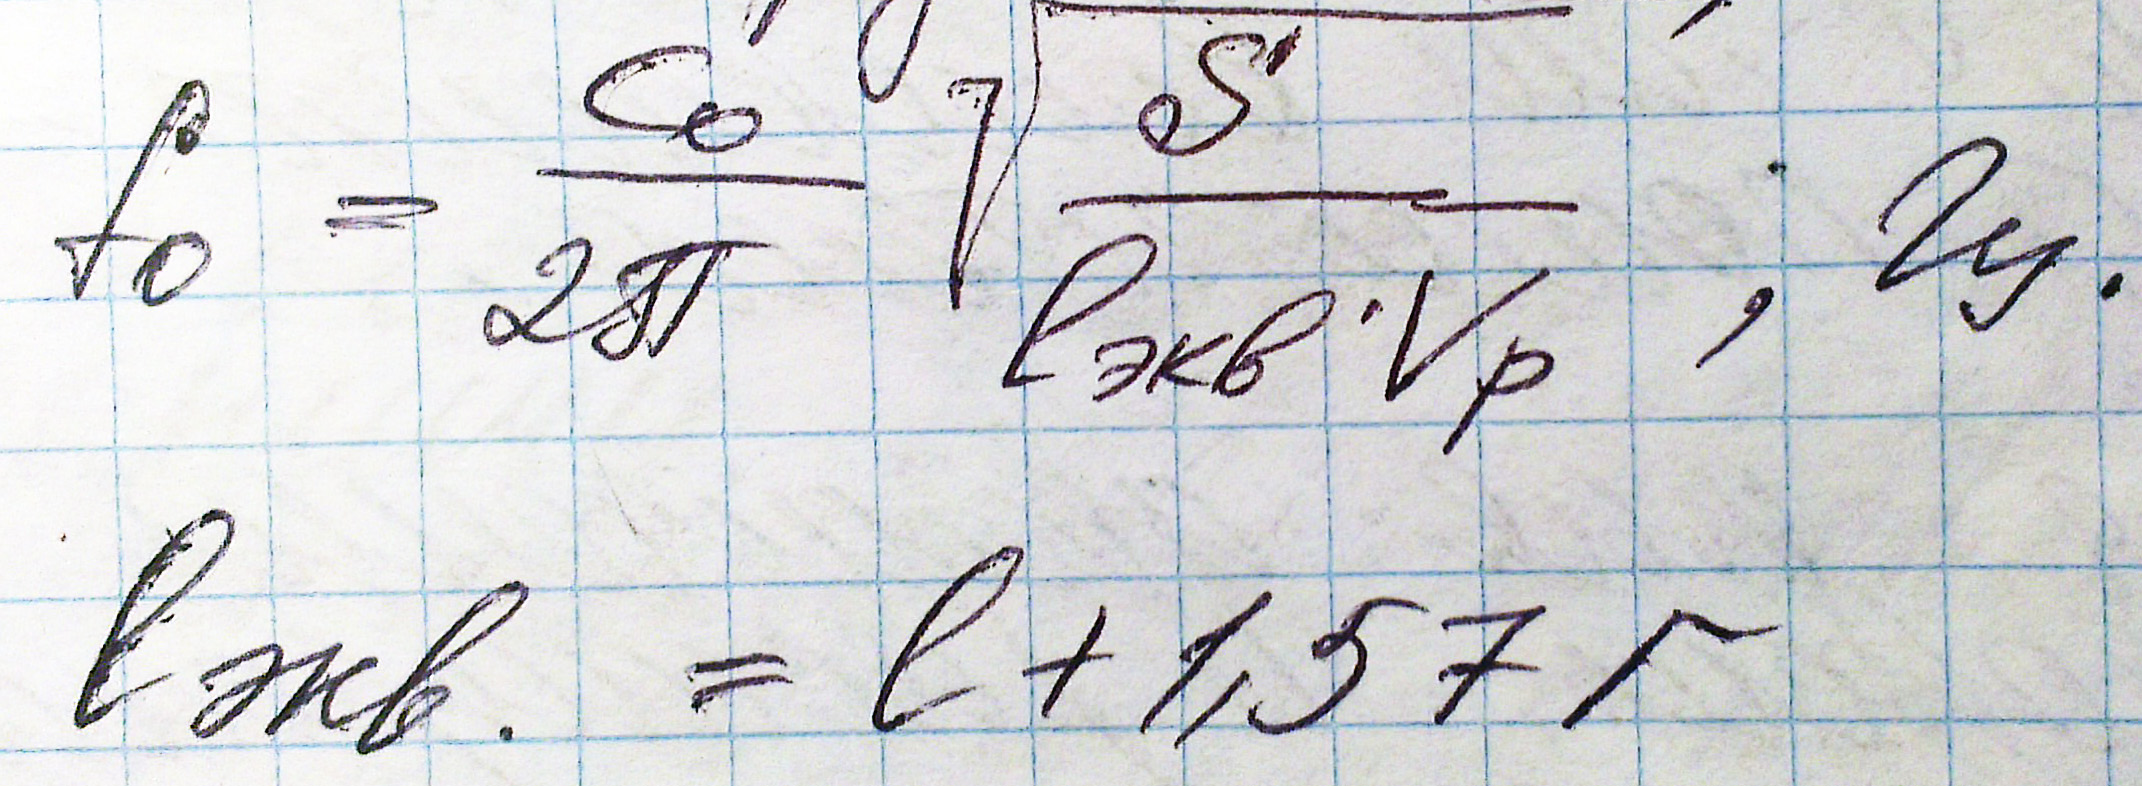 f₀ = C₀/2π √(S/(lэкв·Vр)); Гц.
lэкв. = l + 1,57 r